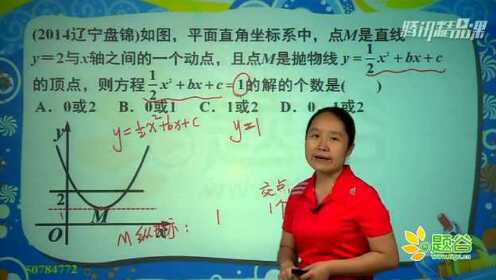 腾讯精品课
(2014辽宁盘锦)如图，平面直角坐标系中，点M是直线
y＝2与x轴之间的一个动点，且点M是抛物线 y＝1/2x²＋bx＋c
的顶点，则方程1/2x²＋bx＋c＝1的解的个数是( )
A．0或2 B．0或1 C．1或2 D．0，1或2
y=1/2x²+bx+c y=1
y
2
1
M
O
交点
M纵坐标： 1 1个
题谷
50784772